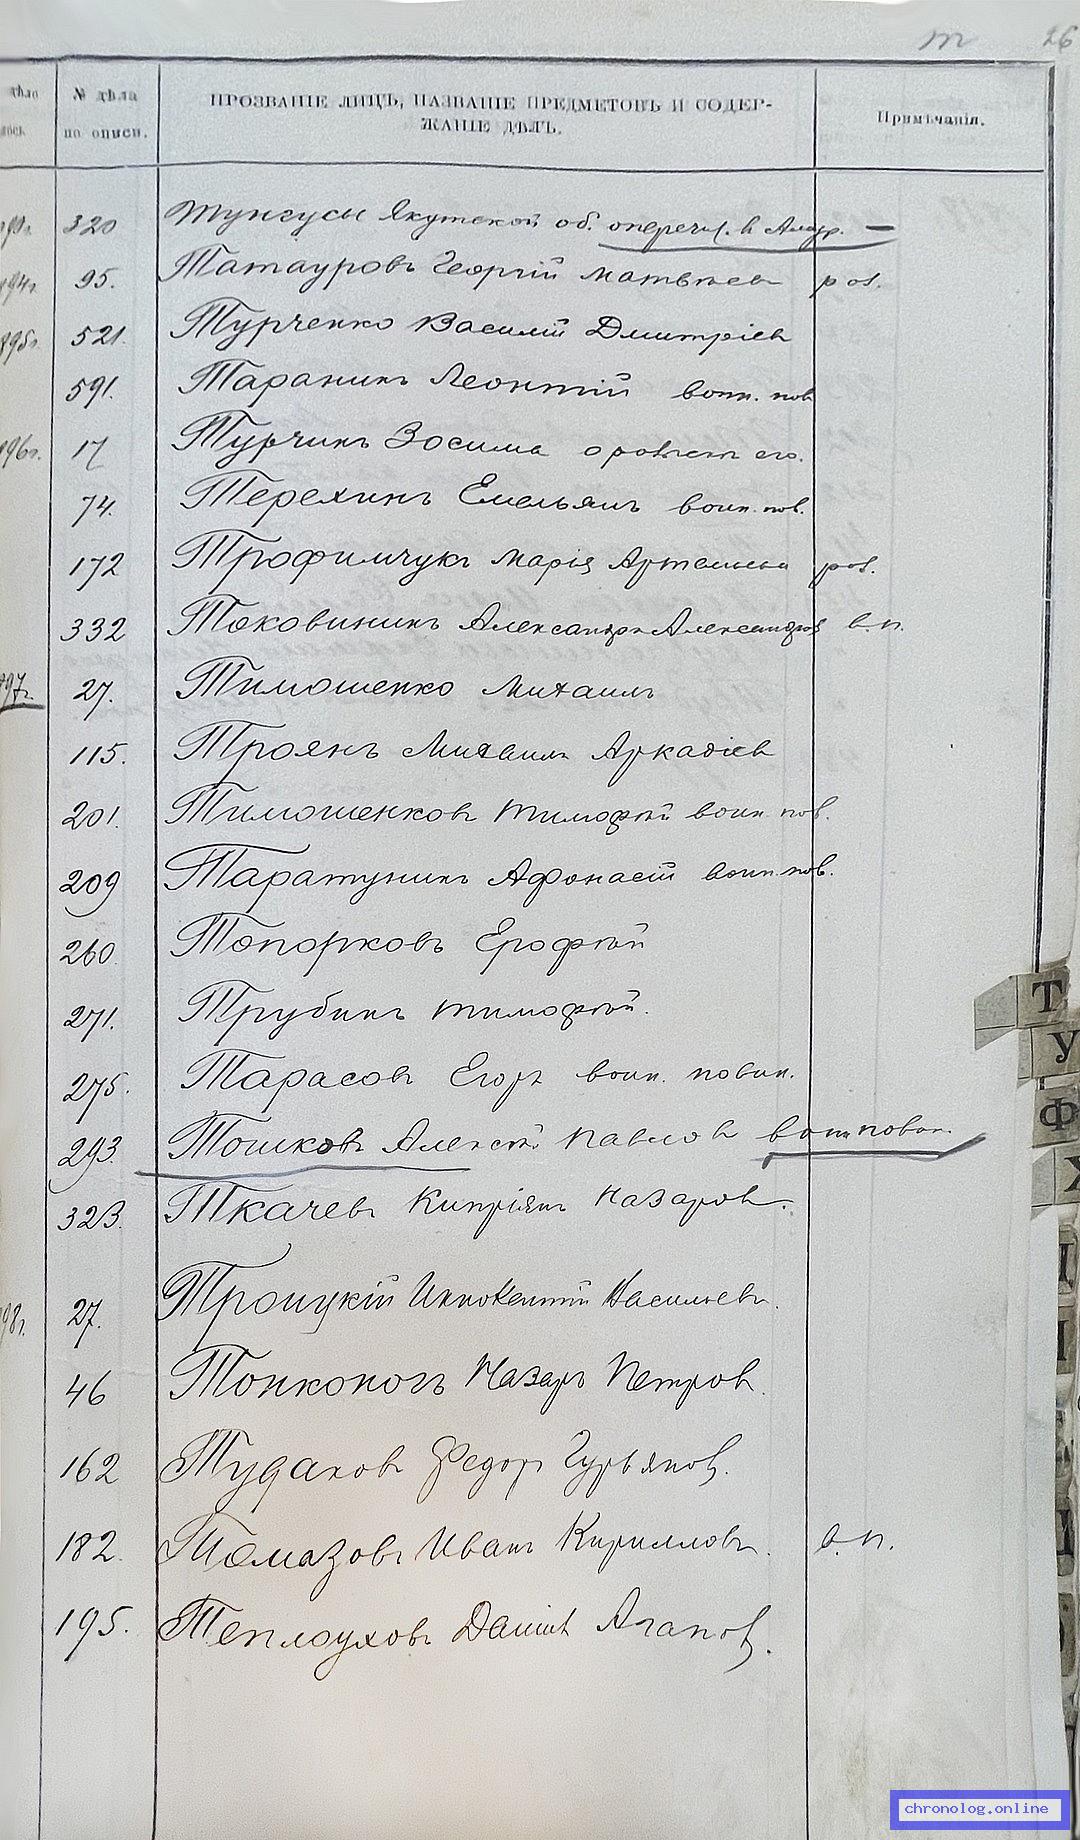 т 26
№ дѣла по описи.
ПРОЗВАНІЕ ЛИЦЪ, НАЗВАНІЕ ПРЕДМЕТОВЪ И СОДЕР-
ЖАНІЕ ДѢЛЪ.
Примѣчанія.
320 Тунгусы Якутской об. о перечисл. в Амур. —
95. Татауровъ Георгій Матвѣев роз.
895г. 521. Турченко Василій Дмитріев
591. Таранинъ Леонтій воин. пов
96г. 17 Турчинъ Зосима о розыск его.
74. Терехинъ Емельянъ воин. пов.
172 Трофимчукъ Марія Артемьева роз.
332 Токовининъ Александръ Александров в. п.
97г. 27. Тимошенко Михаилъ
115. Троянъ Михаилъ Аркадіев
201. Тимошенковъ Тимофѣй воин пов.
209 Таратунинъ Афонасій воин. пов.
260. Топорковъ Ерофѣй
271. Трубинъ Тимофѣй.
275. Тарасовъ Егоръ воин. повин.
293. Тошковъ Алексѣй Павлов воин повин.
323. Ткачевъ Кипріянъ Назаров.
98г. 27. Троицкій Иннокентій Васильевъ.
46 Тонконогъ Назаръ Петров.
162 Тудаковъ Федоръ Гурьянов.
182. Томазовъ Иванъ Кирилловъ. в. п.
195. Теплоуховъ Даниил Агапов.
Т
У
Ф
Х
chronolog.online